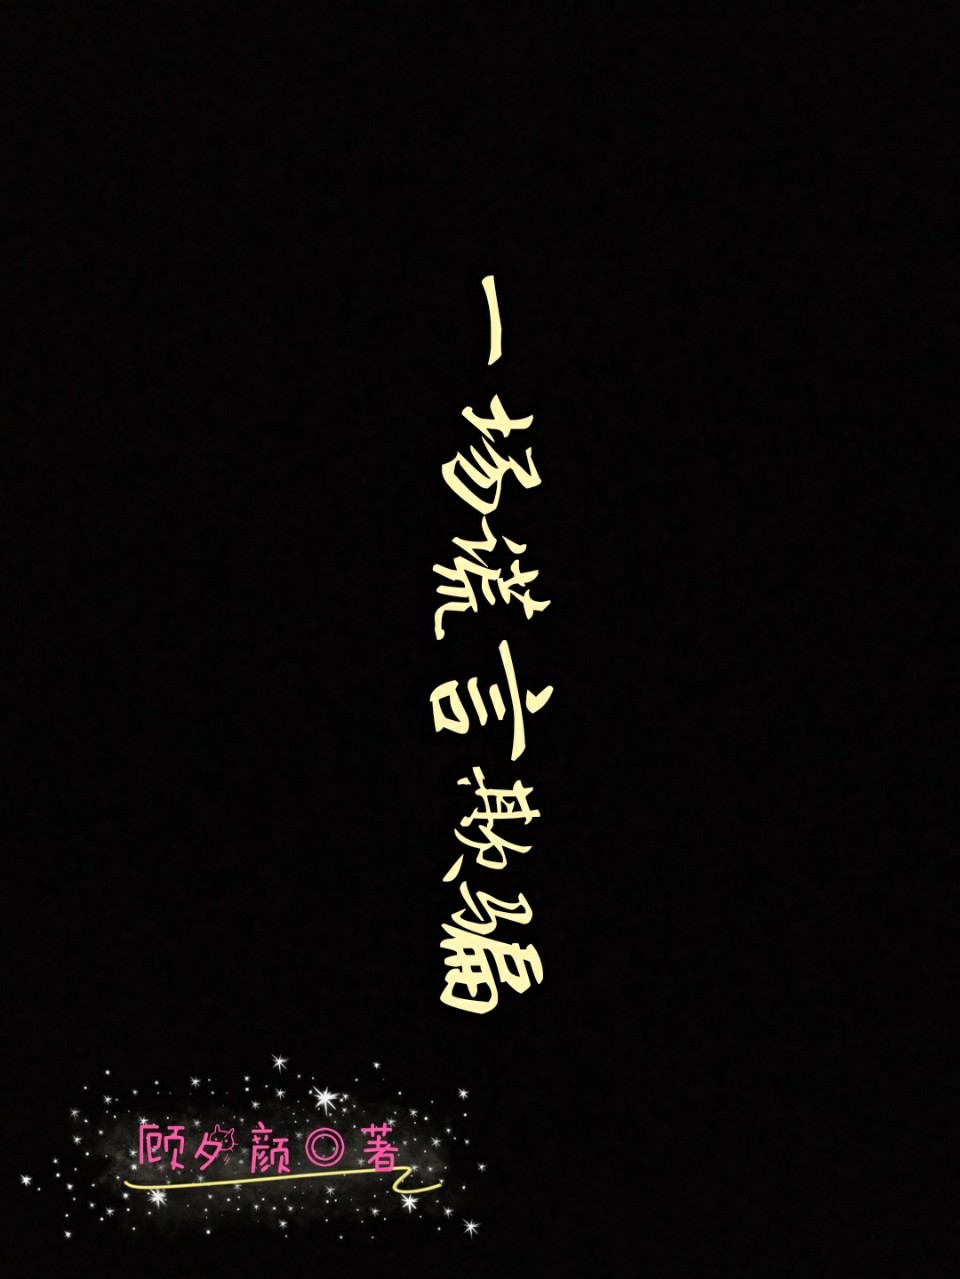 一场谎言欺骗
顾夕颜◎著